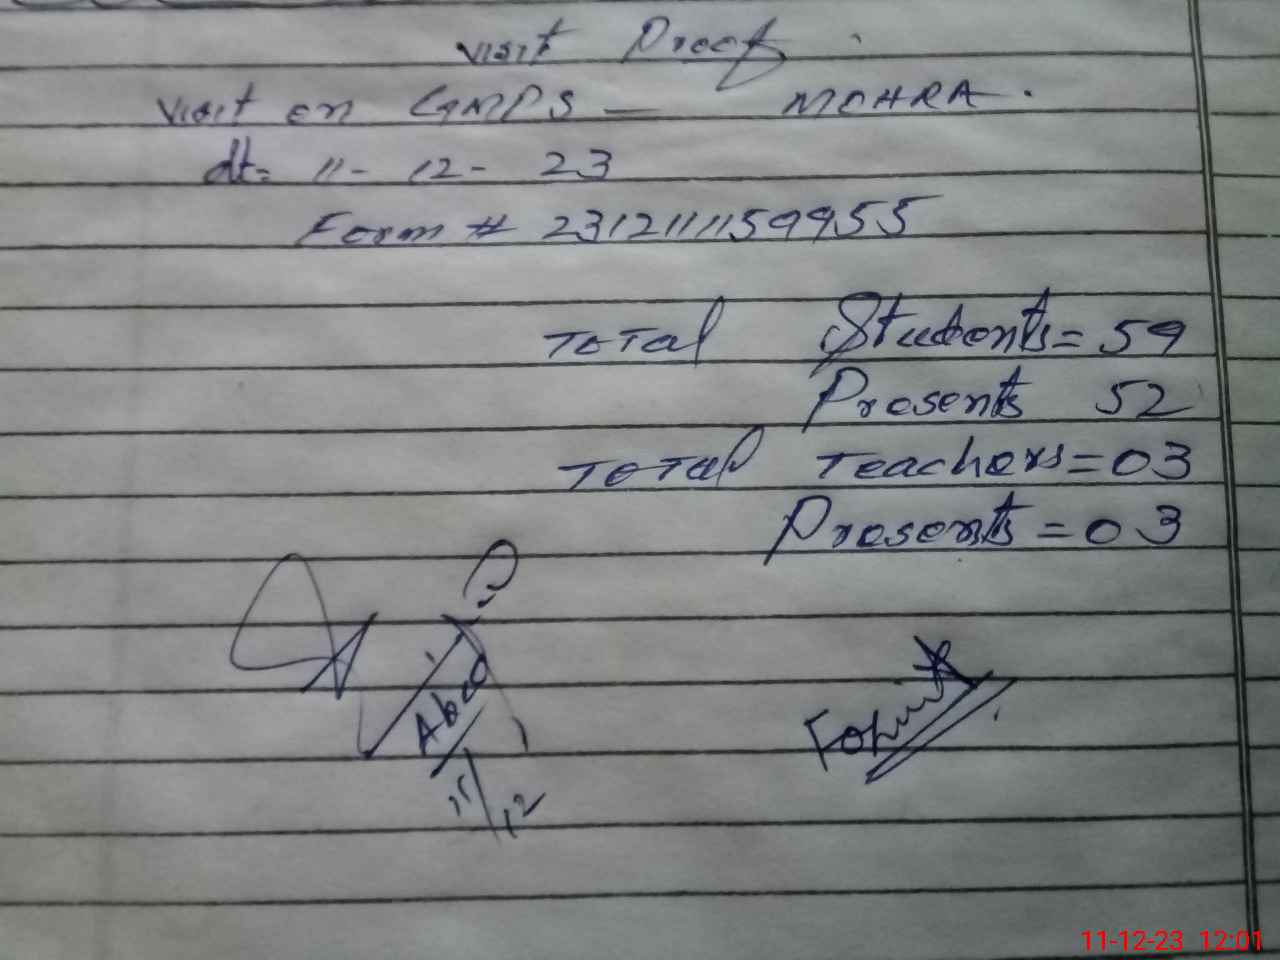 visit Proof
visit on GMPS - MOHRA.
dt= 11- 12- 23
Form # 2312111159955
Total Students = 59
Presents 52
Total Teachers = 03
Presents = 03
Abco
11/12
11-12-23 12:01